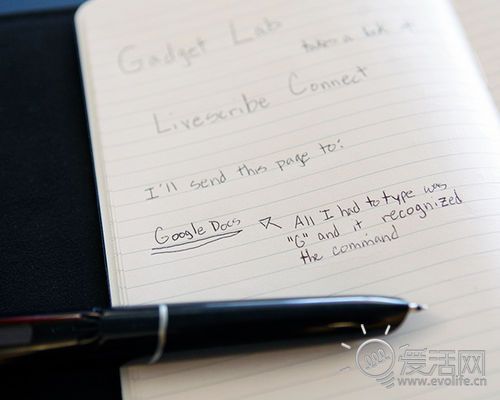 Gadget Lab
takes a look at
Livescribe Connect
I'll send this page to:
Google Docs
All I had to type was
"G" and it recognized
the command
爱活网
www.evolife.cn